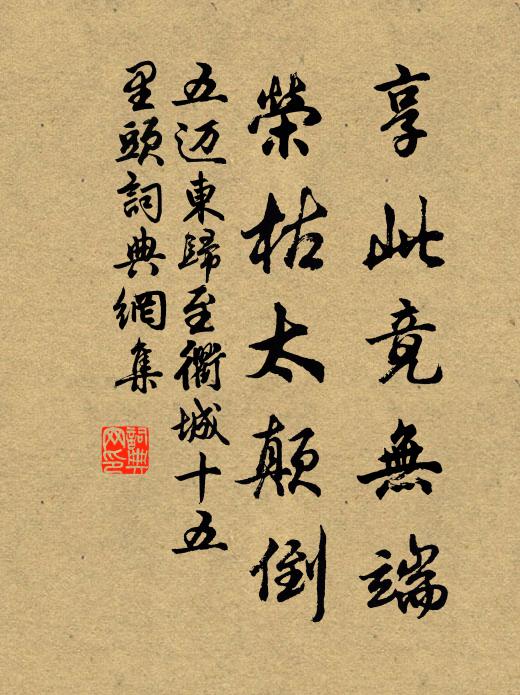 享此竟無端
榮枯太顛倒
五迈東歸至衢城十五
里頭詞典網集
詞典
网印